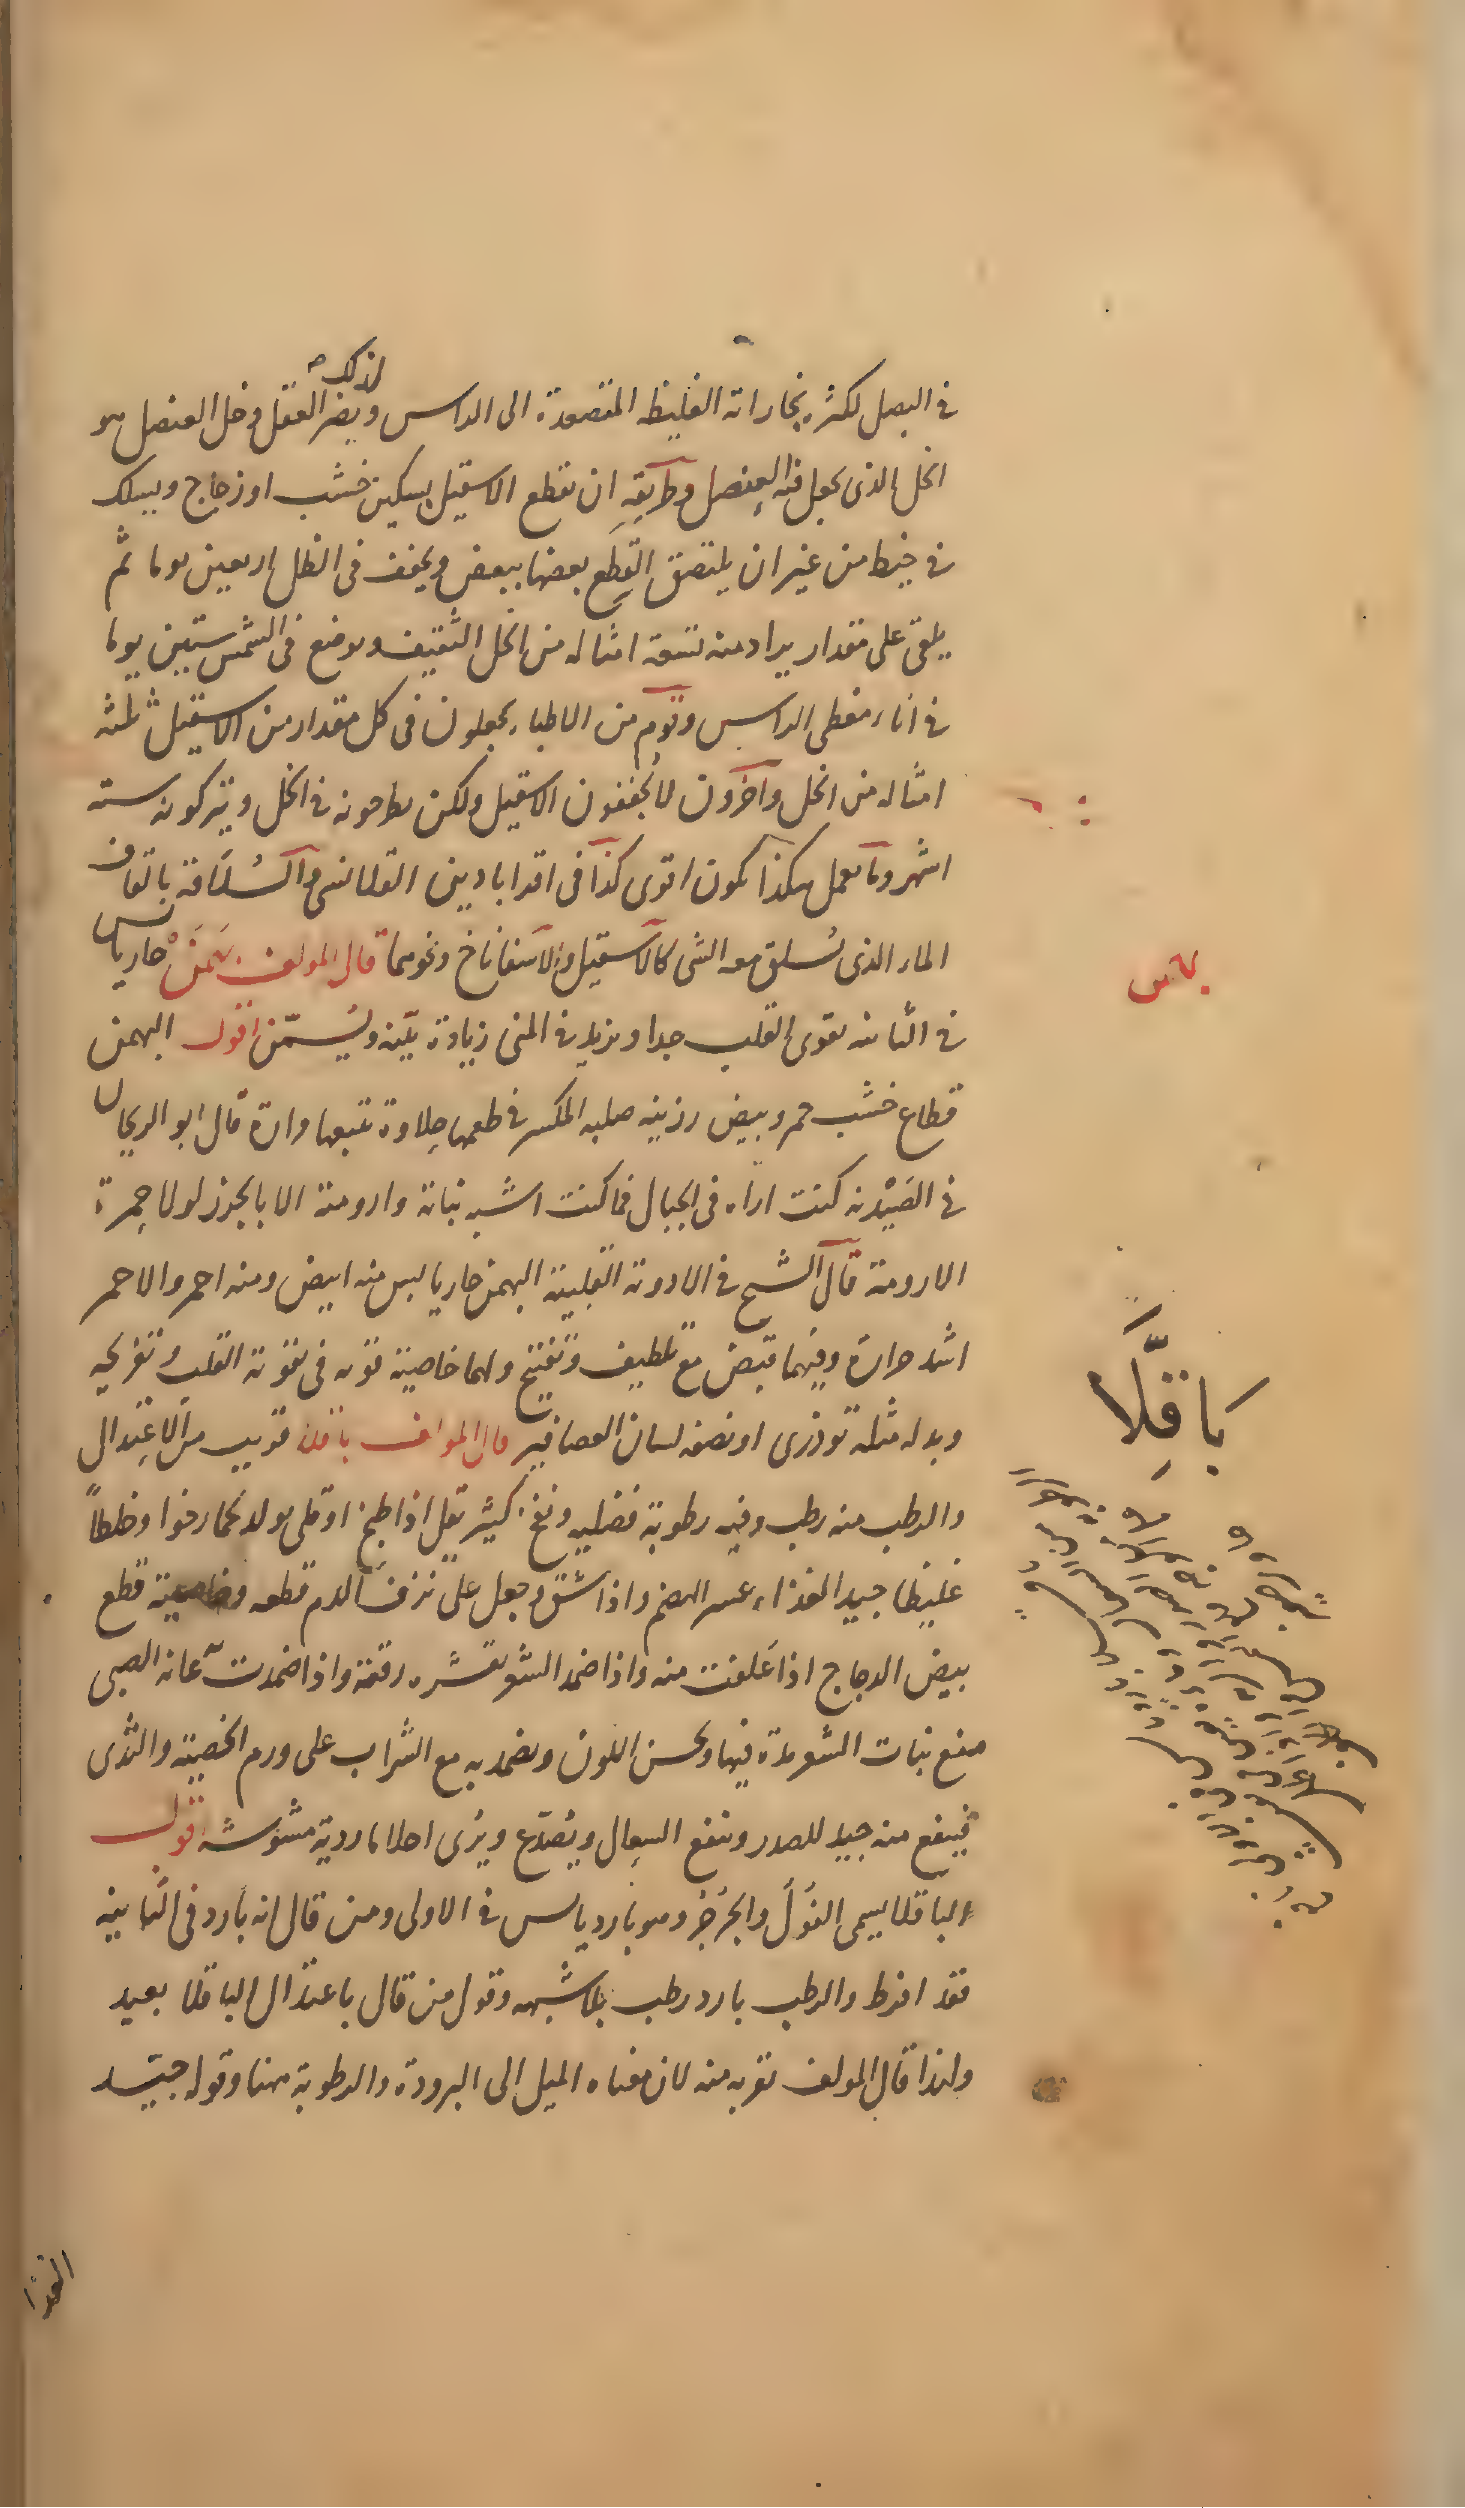 في البصل لكثرة بخاراته الغليظه المتصعدة الى الراس ويضر العقل لذلك وخل العنصل هو
الخل الذى يجعل فيه العنصل وطريقه ان يقطع الاسقيل بسكين خشب او زجاج ويسلك
في خيط من غير ان يلتصق القطع بعضها ببعض ويجفف فى الظل اربعين يوما ثم
يلقى على مقدار يراد منه تسعة امثاله من الخل الثقيف ويوضع فى الشمس ستين يوما
في اناء مغطى الراس وقوم من الاطباء يجعلون فى كل مقدار من الاسقيل ثلثة
امثاله من الخل وآخرون لا يجففون الاسقيل ولكن يطرحونه في الخل ويتركونه ستة
اشهر وما يعمل هكذا يكون اقوى كذا فى اقراباذين القلانسى والسلاقة بالقاف
الماء الذى سلق معه الشى كالاسقيل والاسفاناخ ونحوهما قال المولف بهمن حار يابس
في الثانيه يقوى القلب جدا ويزيد في المنى زيادة بينه ويسمن اقول البهمن
قطاع خشب حمر وبيض رزينه صلبه المكسر في طعمها حلاوة تتبعها مرارة قال ابو الريحان
في الصيدنه كنت اراه فى الجبال فما كنت اشبه نباته وارومته الا بالجزر لولا حمرة
الارومة قال الشيخ في الادوية القلبية البهمن حار يابس منه ابيض ومنه احمر والاحمر
اشد حرارة وفيهما قبض مع تلطيف وتفتيح ولهما خاصية قويه فى تقوية القلب وتفريحه
وبدله مثله توذرى او نصفه لسان العصافير قال المولف باقلا قريب من الاعتدال
والرطب منه رطب وفيه رطوبة فضليه ونفخ كثير يقل اذا طبخ او قلى يولد لحما رخوا وخلطا
غليظا جيد الغذاء عسر الهضم واذا شق وجعل على نزف الدم قطعه وخاصيته قطع
بيض الدجاج اذا علفت منه واذا ضمد الشعر بقشره رققه واذا ضمدت عانه الصبى
منع نبات الشعر مدة فيها ويحسن اللون ويضمد به مع الشراب على ورم الخصية والثدى
فينفع منه جيد للصدر وينفع السعال ويصدع ويرى احلاما ردية مشوشه اقول
الباقلا يسمى الفول والجرجر وهو بارد يابس في الاولى ومن قال انه بارد فى الثانية
فقد افرط والرطب بارد رطب بلا شبهه وقول من قال باعتدال الباقلا بعيد
ولهذا قال المولف بقربه منه لان معناه الميل الى البرودة والرطوبة ههنا وقوله جيد
بهمن
باقلا